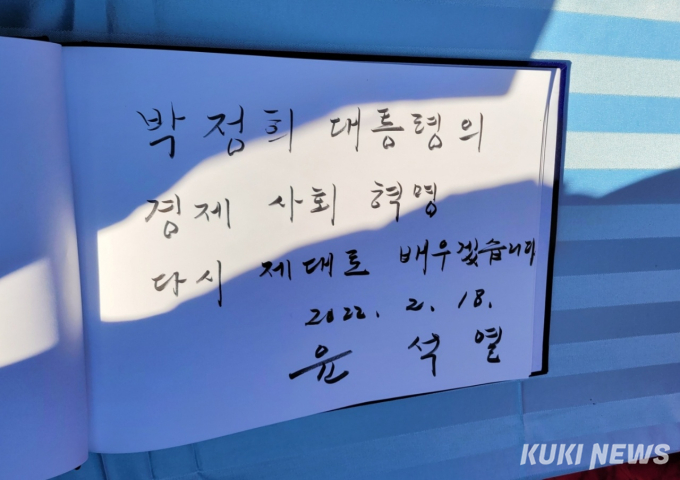 박정희 대통령의
경제 사회 혁명
다시 제대로 배우겠습니다
2022. 2. 18.
윤석열
KUKI NEWS